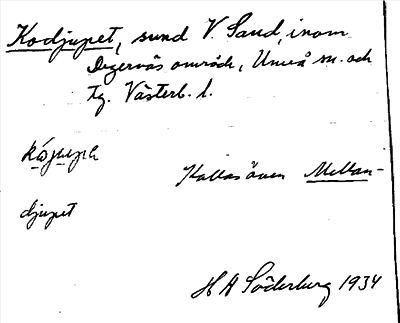 Kodjupet, sund V. Sand, inom
Degernäs område, Umeå sn. och
tg. Västerb. l.
kójupe
Kallas även Mellan-
djupet
H A Söderberg 1934